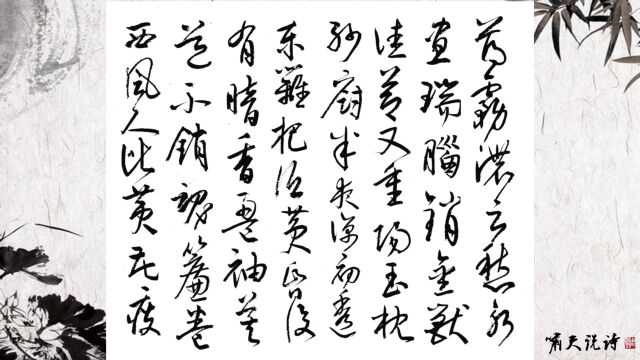 薄霧濃云愁永
晝瑞腦銷金獸
佳節又重陽玉枕
紗廚半夜涼初透
東籬把酒黃昏後
有暗香盈袖莫
道不銷魂簾卷
西風人比黃花瘦
嘯夫说诗